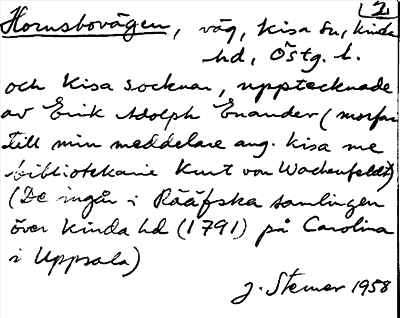 2
Hornsbovägen, väg, Kisa sn, Kinda
hd, Östg. l.
och Kisa socknar, upptecknade
av Erik Adolph Enander (morfar
till min meddelare ang. Kisa me
bibliotekarie Kurt von Wachenfeldt)
(De ingår i Rääfska samlingen
över Kinda hd (1791) på Carolina
i Uppsala)
J. Stemer 1958